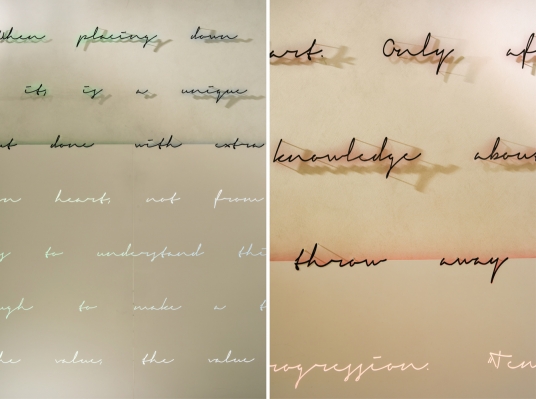 When placing down
its is a unique
done with extra
heart, not from
to understand
to make a
the value, the value
art. Only
knowledge about
throw away